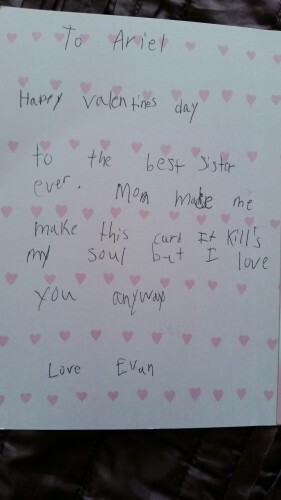 To Ariel
Happy valentines day
to the best sister
ever. Mom made me
make this card It kill's
my soul but I love
you anyway
Love Evan